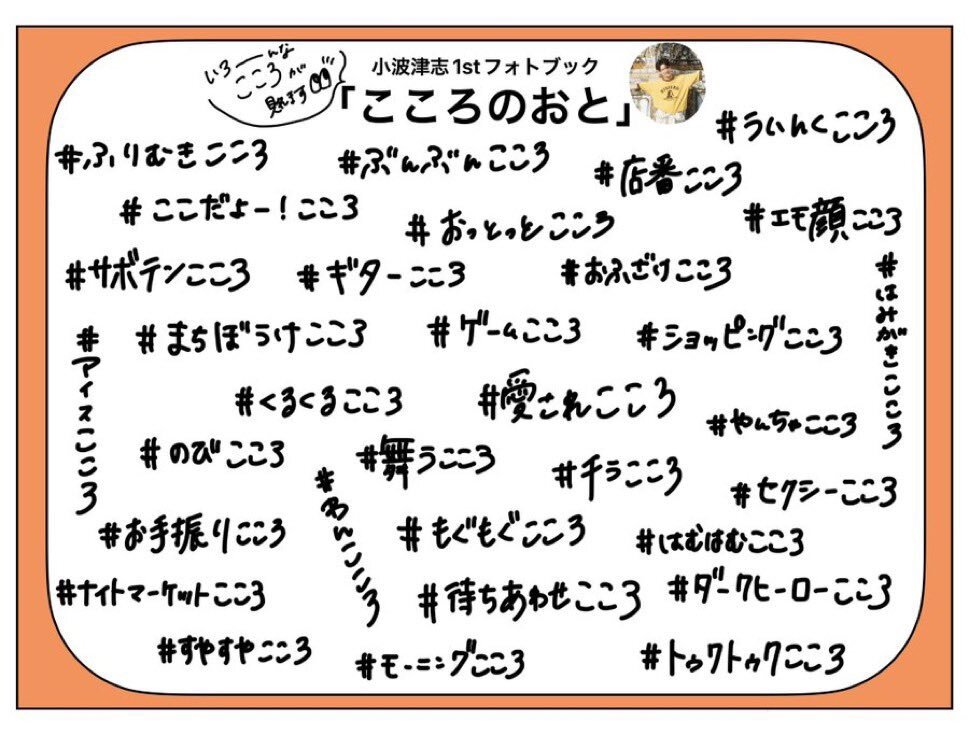 いろーんな
こころが
見れます
小波津志1stフォトブック
「こころのおと」
#ういんくこころ
#ふりむきこころ
#ぶんぶんこころ
#店番こころ
#ここだよー!こころ
#おっとっとこころ
#エモ顔こころ
#サボテンこころ
#ギターこころ
#おふざけこころ
#はみがきこころ
#アイスこころ
#まちぼうけこころ
#ゲームこころ
#ショッピングこころ
#くるくるこころ
#愛されこころ
#やんちゃこころ
#のびこころ
#舞うこころ
#チラこころ
#セクシーこころ
#わんこころ
#お手振りこころ
#もぐもぐこころ
#はむはむこころ
#ナイトマーケットこころ
#待ちあわせこころ
#ダークヒーローこころ
#すやすやこころ
#モーニングこころ
#トゥクトゥクこころ